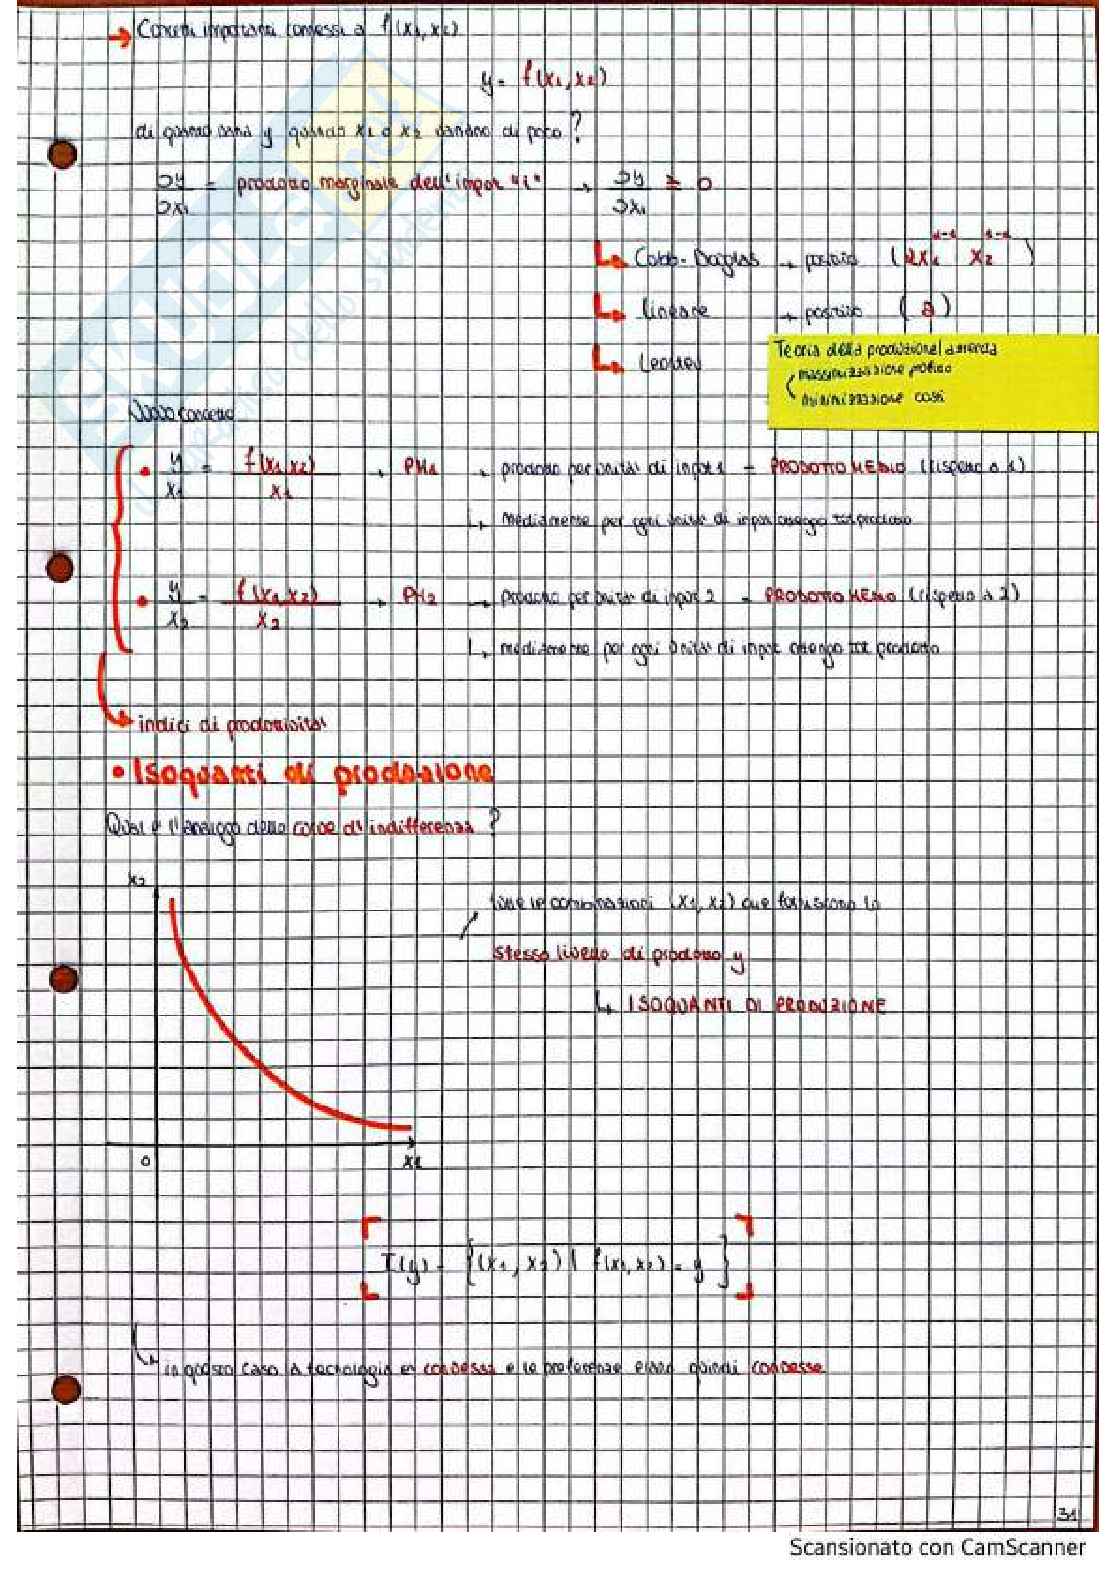 → Concetti importanti connessi a f(x₁,x₂)
y = f(x₁,x₂)
di quanto varia y quando x₁ o x₂ variano di poco?
∂y/∂x₁ = prodotto marginale dell'input "i" → ∂y/∂x₁ ≥ 0
↳ Cobb-Douglas → positivo
↳ lineare → positivo (a)
↳ Leontief
Teoria della produzione/azienda
massimizzazione profitto
minimizzazione costi
Nuovo concetto
• y/x₁ = f(x₁,x₂)/x₁ → PM₁ → prodotto per unità di input 1 = PRODOTTO MEDIO (rispetto a 1)
↳ mediamente per ogni unità di input ottengo tot prodotto
• y/x₂ = f(x₁,x₂)/x₂ → PM₂ → prodotto per unità di input 2 = PRODOTTO MEDIO (rispetto a 2)
↳ mediamente per ogni unità di input ottengo tot prodotto
indici di produttività
• Isoquanti di produzione
Qual è l'analogo delle curve di indifferenza?
x₂
tutte le combinazioni (x₁,x₂) che forniscono lo
stesso livello di prodotto y
↳ ISOQUANTI DI PRODUZIONE
0
x₁
I(y) = {(x₁,x₂) | f(x₁,x₂) = y}
↳ in questo caso la tecnologia è convessa e le preferenze erano quindi convesse
31
Scansionato con CamScanner
SKUOLA.net
dello studente